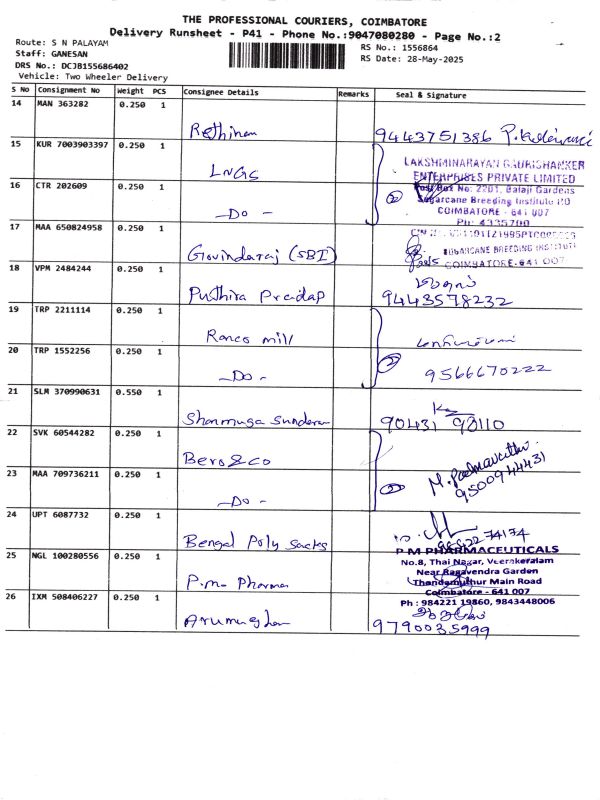 THE PROFESSIONAL COURIERS, COIMBATORE
Delivery Runsheet - P41 - Phone No.:9047080280 - Page No.:2
Route: S N PALAYAM
Staff: GANESAN
DRS No.: DCJB155686402
Vehicle: Two Wheeler Delivery
RS No.: 1556864
RS Date: 28-May-2025
S No Consignment No Weight PCS Consignee Details Remarks Seal & Signature
14 MAN 363282 0.250 1
Rethinam 9443751386
15 KUR 7003903397 0.250 1
LNGS
LAKSHMINARAYAN GAURISHANKER
ENTERPRISES PRIVATE LIMITED
16 CTR 202609 0.250 1
-Do- 2
Post Box No: 2201, Balaji Gardens
Sugarcane Breeding Institute PO
COIMBATORE - 641 007
Ph: 4335700
17 MAA 650824958 0.250 1
Govindaraj (SBI)
SUGARCANE BREEDING INSTITUTE
COIMBATORE-641 007
18 VPM 2484244 0.250 1
Puthira Pradap 9443578232
19 TRP 2211114 0.250 1
Ranco mill
20 TRP 1552256 0.250 1
-Do- 2 9566670222
21 SLM 370990631 0.550 1
Shanmuga Sundaram 90431 93110
22 SVK 60544282 0.250 1
Bero & co
M. Padmavathi
9500944431
23 MAA 709736211 0.250 1
-Do- 2
24 UPT 6087732 0.250 1
Bengal Poly Sacks
25 NGL 100280556 0.250 1
P.m Pharma
P M PHARMACEUTICALS
No.8, Thai Nagar, Veerakeralam
Near Ragavendra Garden
Thondamuthur Main Road
Coimbatore - 641 007
Ph : 984221 19860, 9843448006
26 IXM 508406227 0.250 1
Arumugham 9790035999